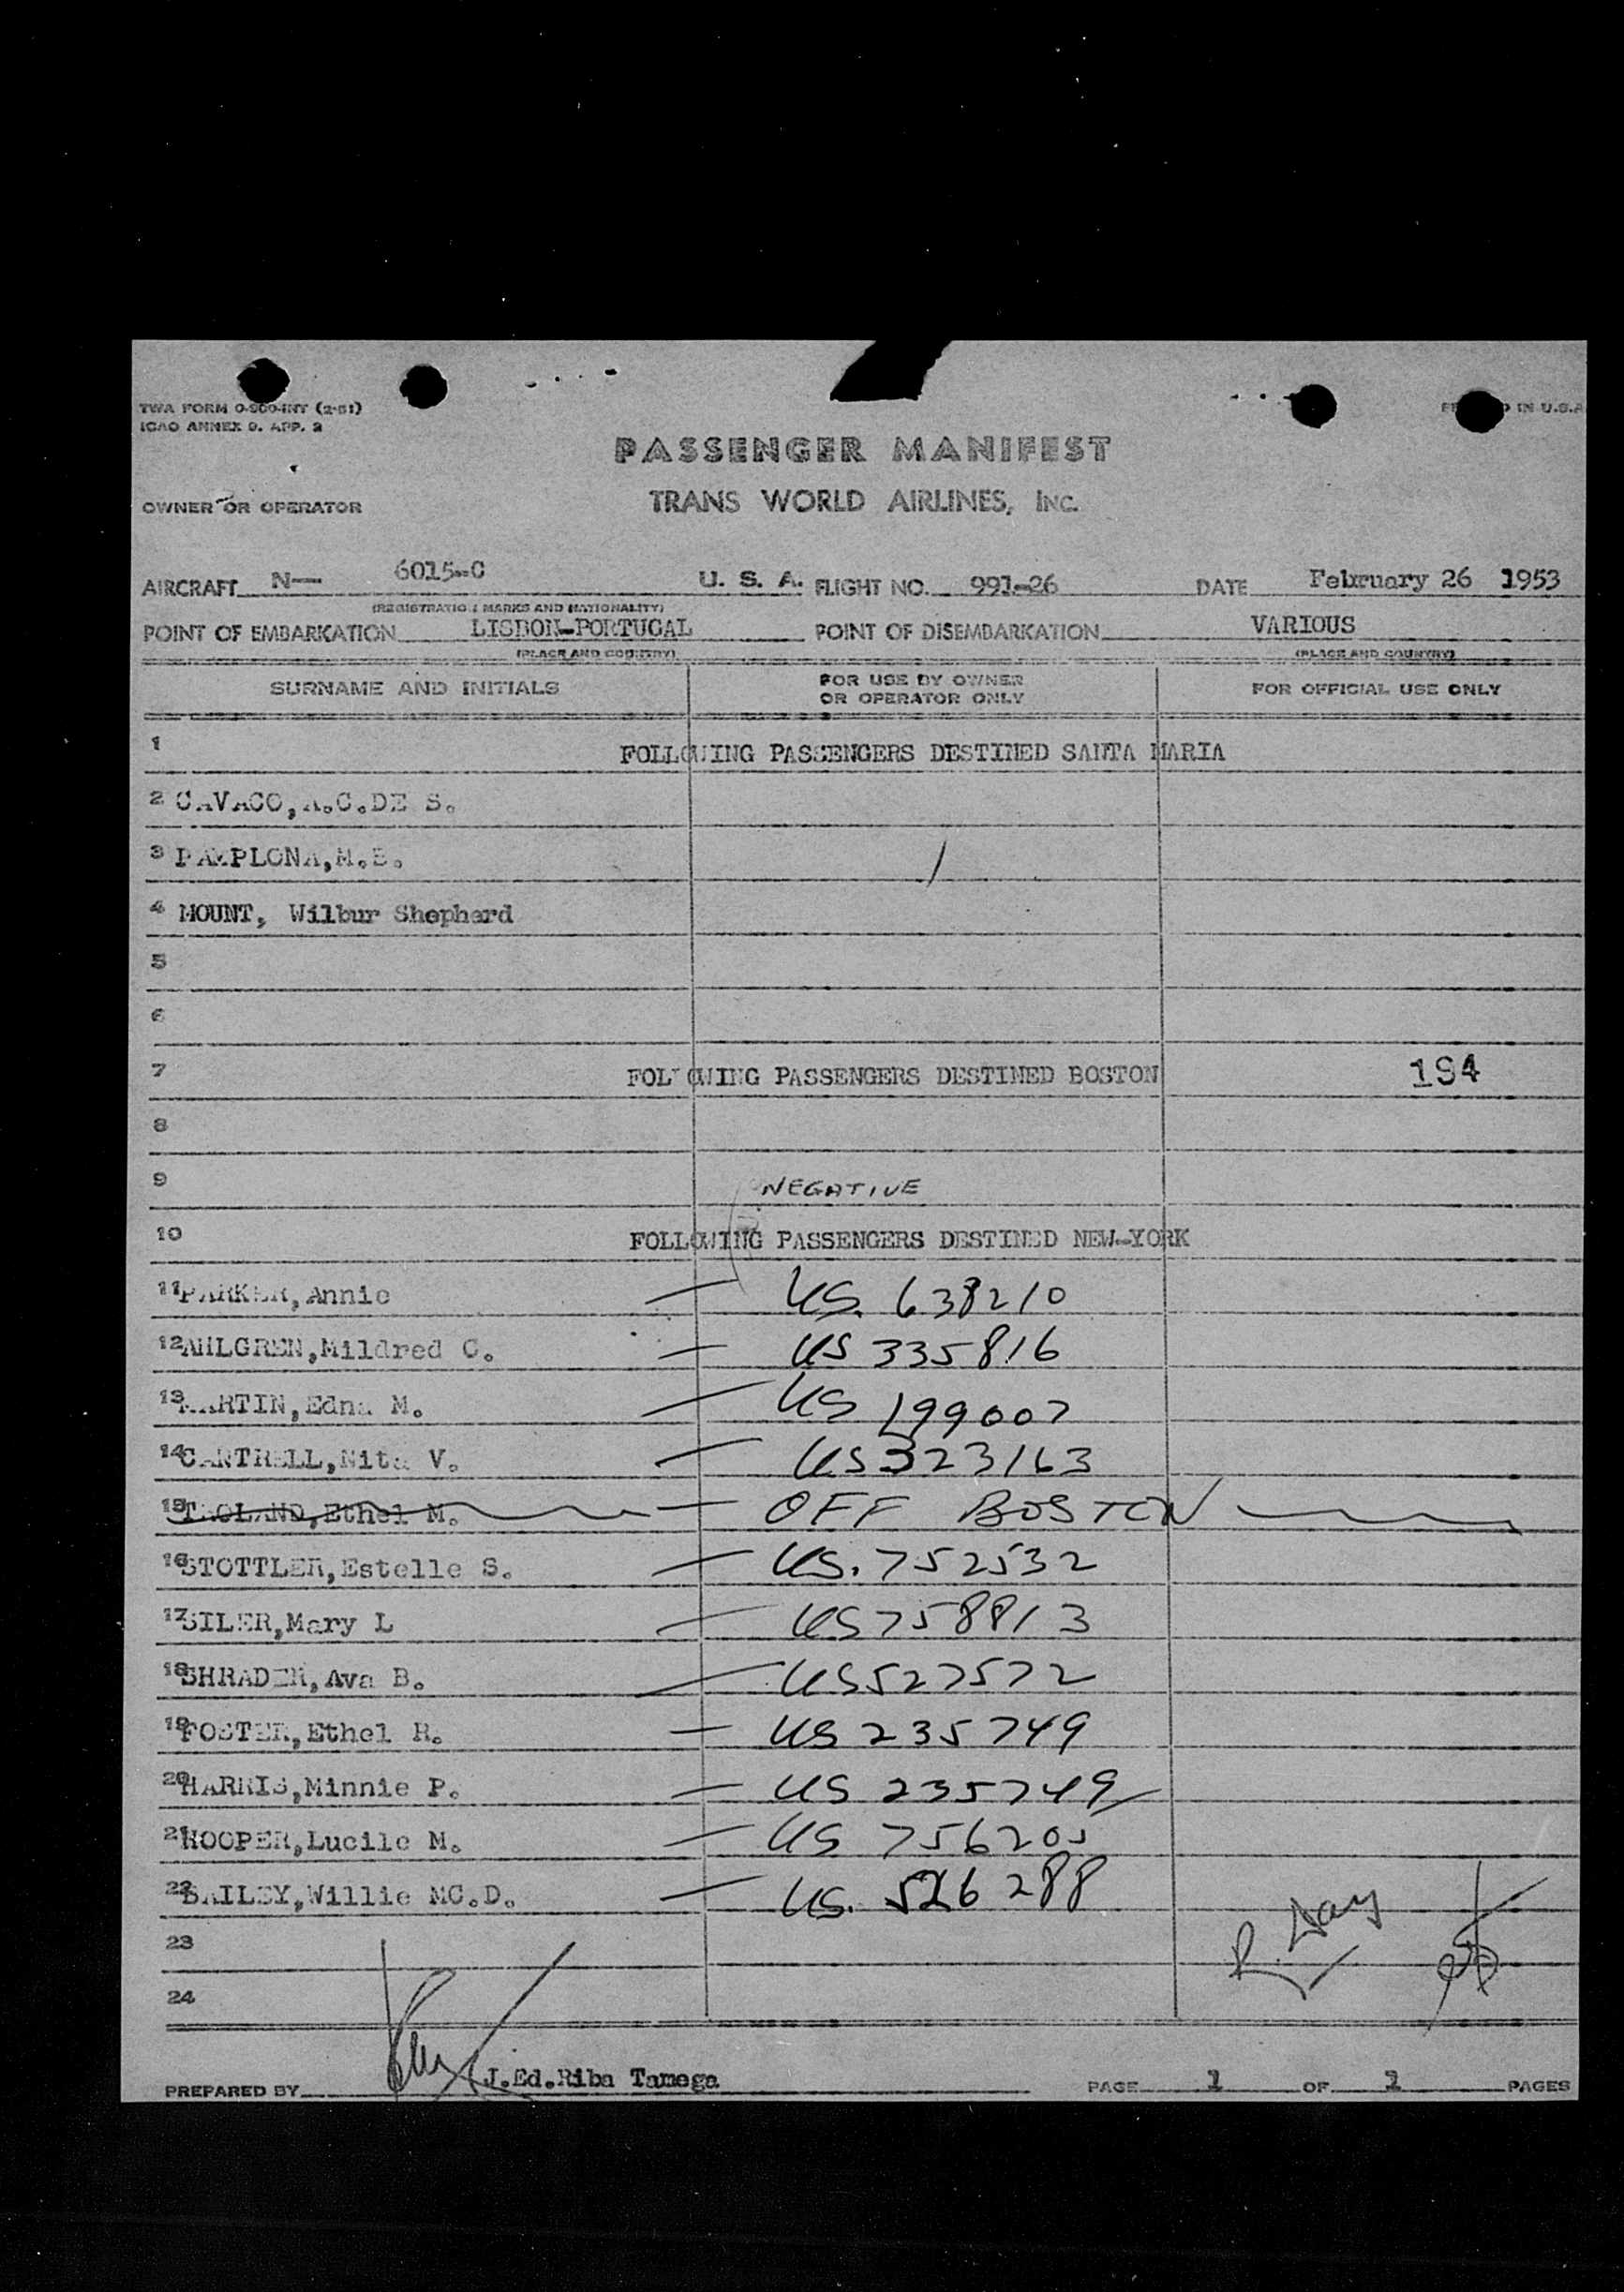 TWA FORM 0-900-INT (2-51)
ICAO ANNEX 9. APP. 2
IN U.S.A
PASSENGER MANIFEST
OWNER OR OPERATOR TRANS WORLD AIRLINES, INC.
AIRCRAFT N— 6015-C U. S. A. FLIGHT NO. 991-26 DATE February 26 1953
(REGISTRATION MARKS AND NATIONALITY)
POINT OF EMBARKATION LISBON-PORTUGAL POINT OF DISEMBARKATION VARIOUS
(PLACE AND COUNTRY) (PLACE AND COUNTRY)
SURNAME AND INITIALS FOR USE BY OWNER OR OPERATOR ONLY FOR OFFICIAL USE ONLY
1 FOLLOWING PASSENGERS DESTINED SANTA MARIA
2 CAVACO,A.C.DE S.
3 PAMPLONA,M.B. /
4 MOUNT, Wilbur Shephard
5
6
7 FOLLOWING PASSENGERS DESTINED BOSTON 194
8
9 NEGATIVE
10 FOLLOWING PASSENGERS DESTINED NEW-YORK
11 PARKER,Annie — US. 638210
12 AHLGREN,Mildred C. — US 335816
13 MARTIN,Edna M. — US 199007
14 CANTRELL,Nita V. — US 323163
15 Ethel M. — OFF BOSTON
16 STOTTLER,Estelle S. — US. 752532
17 SILER,Mary L — US 758813
18 SHRADER,Ava B. — US 527572
19 FOSTER,Ethel R. — US 235749
20 HARRIS,Minnie P. — US 235749
21 HOOPER,Lucile M. — US 756205
22 BAILEY,Willie MC.D. — US. 526288
23 R. Day
24
PREPARED BY J.Ed.Riba Tamega PAGE 1 OF 1 PAGES